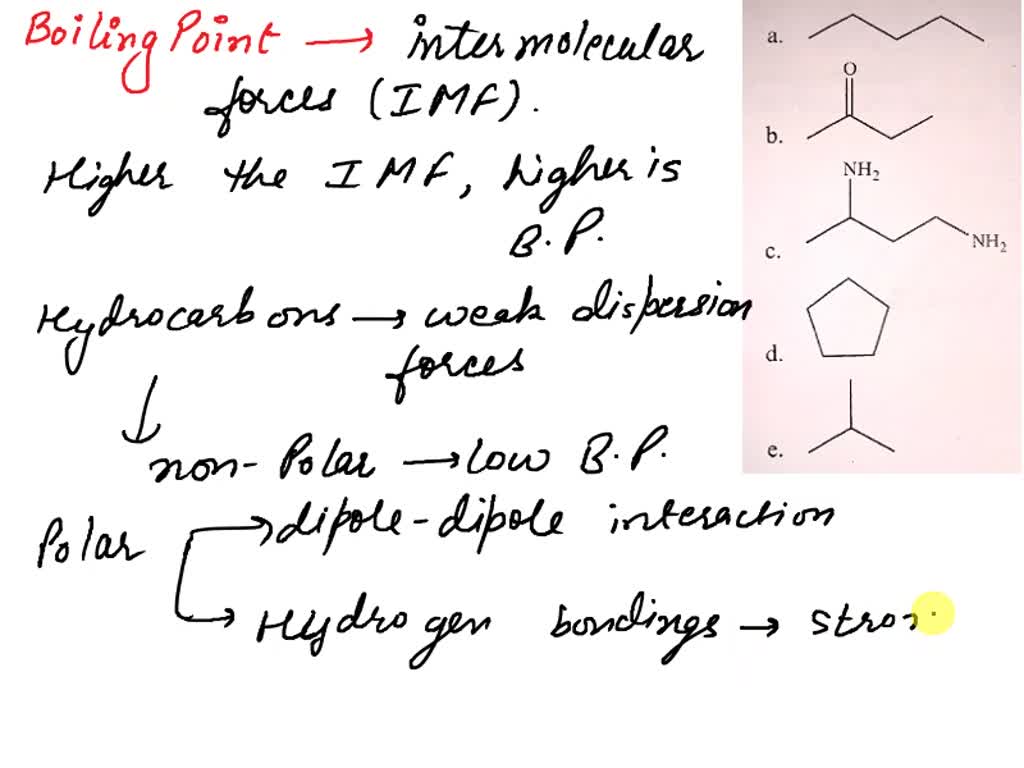 Boiling Point → intermolecular
forces (IMF).
Higher the IMF, higher is
B.P.
Hydrocarbons → weak dispersion
forces
↓
non-Polar → low B.P.
Polar → dipole-dipole interaction
→ Hydrogen bondings → stron
a.
O
b.
NH₂
c. NH₂
d.
e.